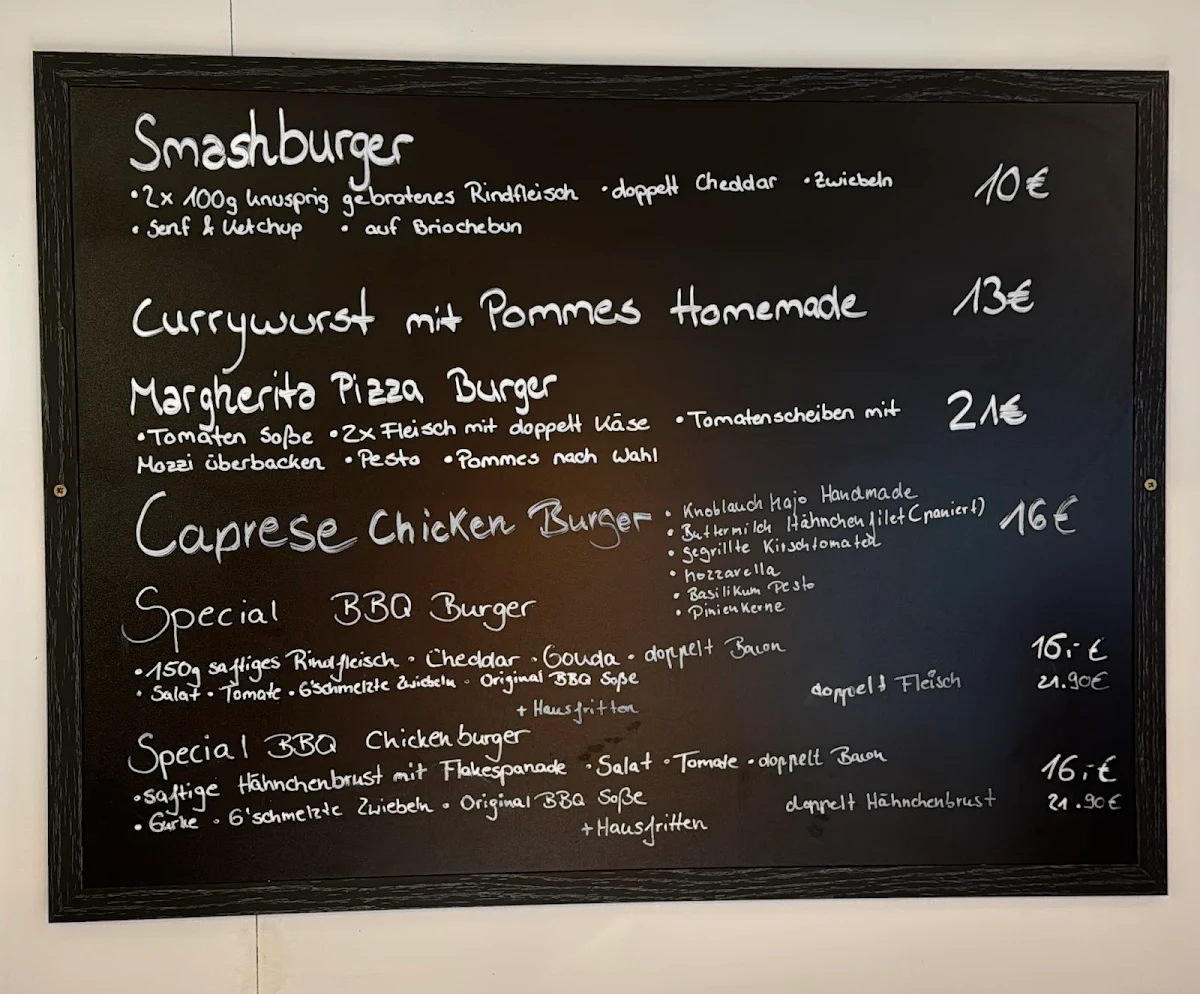 Smashburger
•2x 100g knusprig gebratenes Rindfleisch •doppelt Cheddar •Zwiebeln 10€
• Senf & Ketchup • auf Briochebun
Currywurst mit Pommes Homemade 13€
Margherita Pizza Burger
•Tomaten Soße •2x Fleisch mit doppelt Käse •Tomatenscheiben mit 21€
Mozzi überbacken •Pesto •Pommes nach Wahl
Caprese Chicken Burger 16€
• Knoblauch Majo Handmade
• Buttermilch Hähnchenfilet (paniert)
• gegrillte Kirschtomaten
• Mozzarella
• Basilikum Pesto
• Pinienkerne
Special BBQ Burger
•150g saftiges Rindfleisch • Cheddar • Gouda • doppelt Bacon 16,- €
• Salat • Tomate • G'schmelzte Zwiebeln • Original BBQ Soße doppelt Fleisch 21.90€
+ Hausfritten
Special BBQ Chickenburger
•saftige Hähnchenbrust mit Flakespanade •Salat •Tomate •doppelt Bacon 16,-€
• Gurke • G'schmelzte Zwiebeln • Original BBQ Soße doppelt Hähnchenbrust 21.90€
+Hausfritten